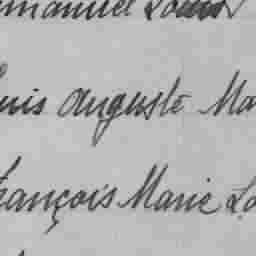 mmanuel Louis
uis Auguste Ma
rançois Marie Lo